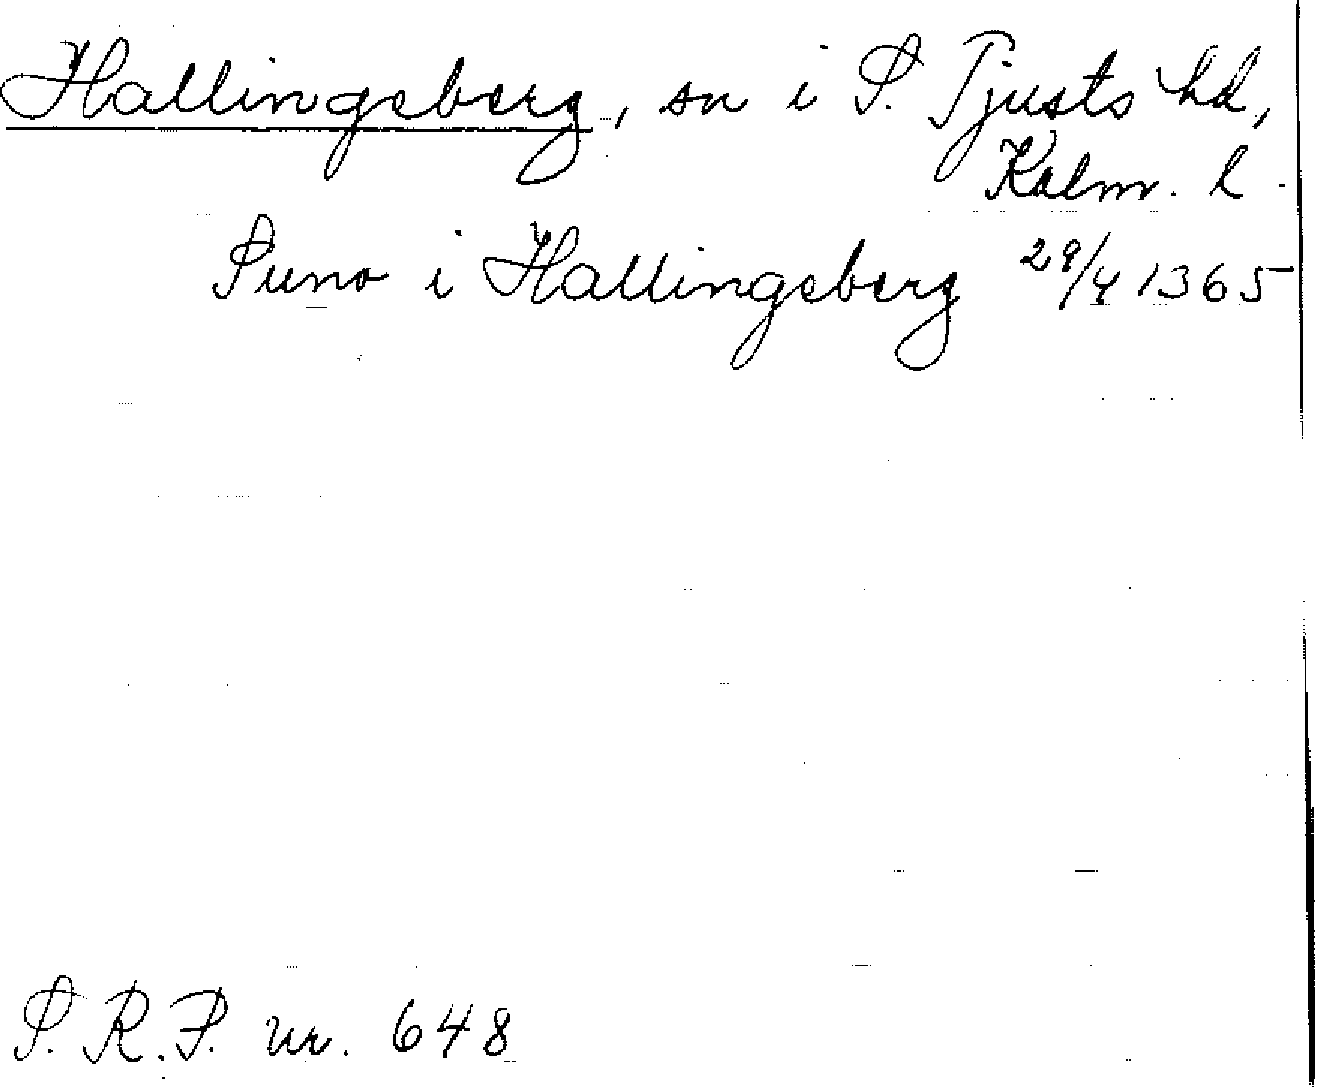 Hallingeberg, sn i S. Tjusts hd,
Kalm. l.
Suno i Hallingeberg 29/4 1365
S. R. P. nr. 648